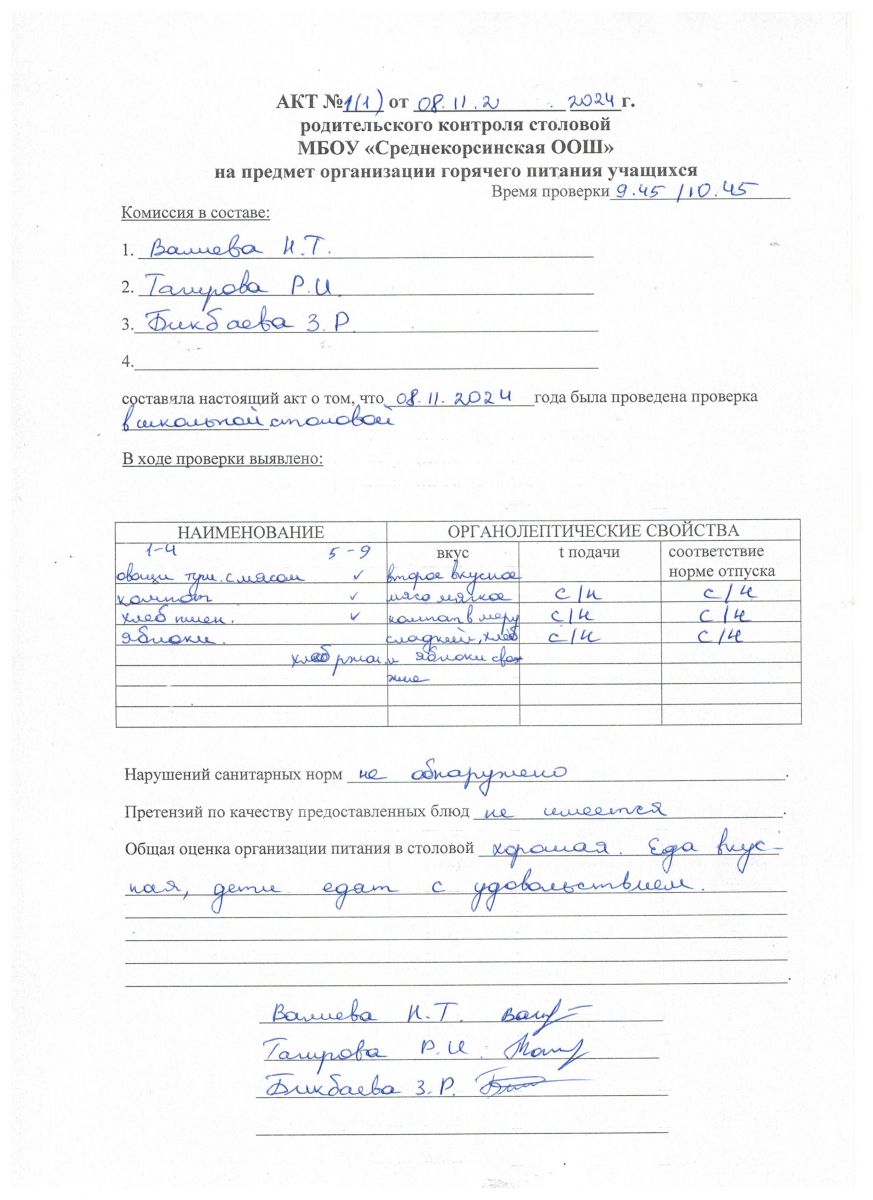 АКТ №1(1) от 08.11.2 . 2024г.
родительского контроля столовой
МБОУ «Среднекорсинская ООШ»
на предмет организации горячего питания учащихся
Время проверки 9.45 /10.45
Комиссия в составе:
1. Валиева Н.Т.
2. Тагирова Р.И.
3. Бикбаева З.Р.
4.
составила настоящий акт о том, что 08.11.2024 года была проведена проверка
в школьной столовой
В ходе проверки выявлено:
НАИМЕНОВАНИЕ ОРГАНОЛЕПТИЧЕСКИЕ СВОЙСТВА
1-4 5-9 вкус t подачи соответствие
норме отпуска
овощи туш. с мясом ✓ второе вкусное
компот ✓ мясо мягкое с/н с/н
хлеб пшен. ✓ компот в меру с/н с/н
яблоки. сладкий, хлеб с/н с/н
хлеб ржан. и яблоки све-
жие
Нарушений санитарных норм не обнаружено.
Претензий по качеству предоставленных блюд не имеется.
Общая оценка организации питания в столовой хорошая. Еда вкус-
ная, дети едат с удовольствием.
Валиева Н.Т.
Тагирова Р.И.
Бикбаева З.Р.